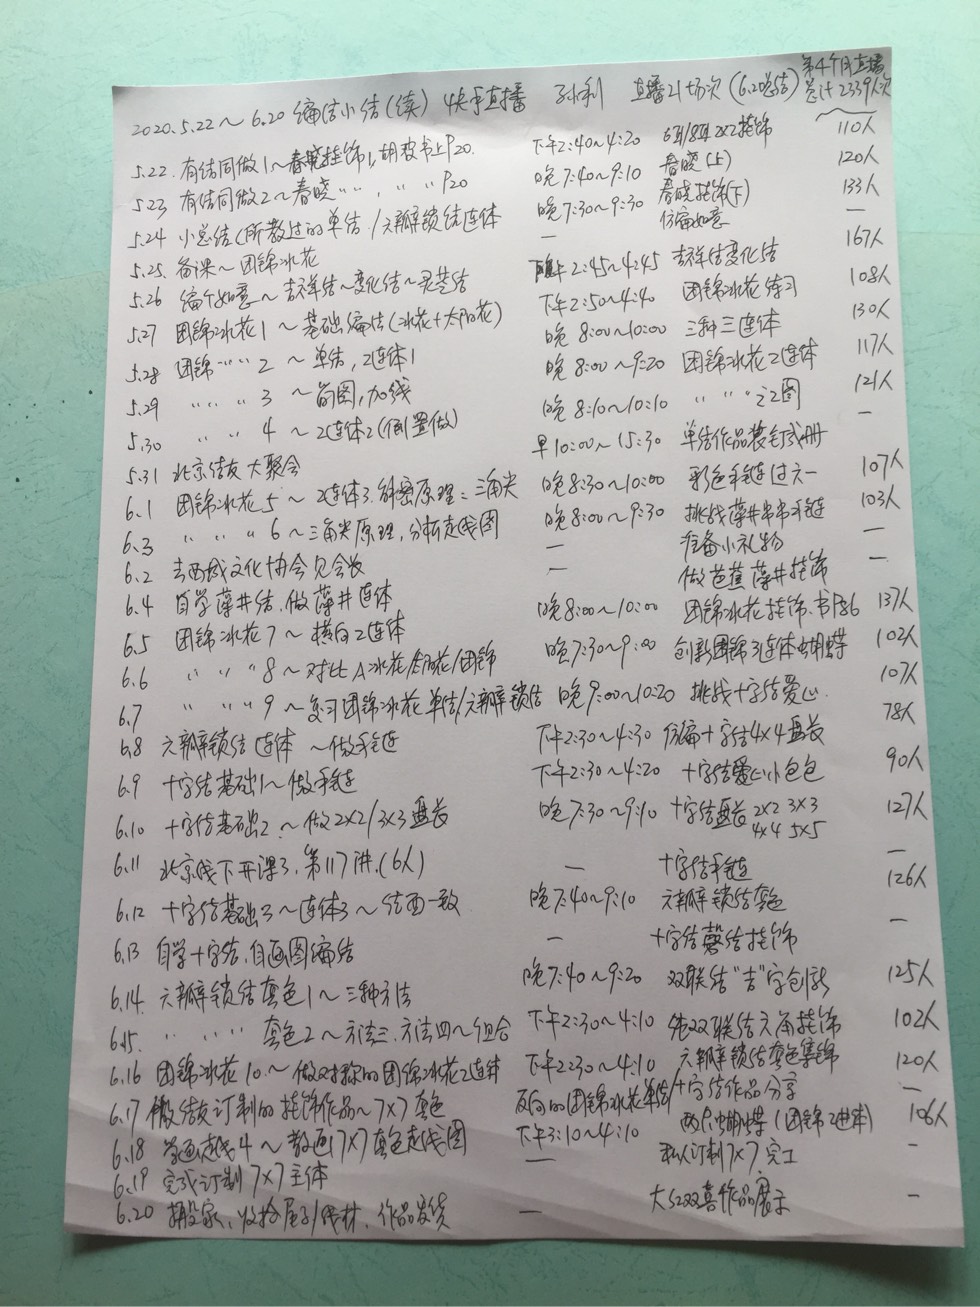 第4个月直播
2020.5.22～6.20 编结小结(续) 快手直播 孙利 直播21场次(6.20总结) 总计2339人次
5.22 有结同做1～春晓挂饰1,胡波书上P20. 下午2:40～4:20 2x2挂饰 110人
5.23 有结同做2～春晓〃〃,〃〃P20 晚7:40～9:10 春晓(上) 120人
5.24 小总结(所教过的单结/六瓣锁结连体 晚7:30～9:30 春晓挂饰(下) 133人
5.25 备课～团锦冰花 — 仿编如意 —
5.26 编个如意～吉祥结～变化结～灵芝结 下午2:45～4:45 吉祥结变化结 167人
5.27 团锦冰花1～基础编结(冰花+太阳花) 下午2:50～4:40 团锦冰花练习 108人
5.28 团锦〃〃2～单结,2连体1 晚8:00～10:00 三种三连体 130人
5.29 〃〃〃3～画图,加线 晚8:00～9:20 团锦冰花2连体 117人
5.30 〃〃4～2连体2(倒置做) 晚8:10～10:10 〃〃〃之2图 121人
5.31 北京结友大聚会 早10:00～15:30 单结作品装订成册 —
6.1 团锦冰花5～2连体3.解密原理:三角尖 晚8:30～10:00 彩色手链过六一 107人
6.3 〃〃〃6～三角尖原理,分析走线图 晚8:00～9:30 挑战藻井串串手链 103人
6.2 去西城文化协会见会长 — 准备小礼物 —
6.4 自学藻井结.做藻井连体 — 做芭蕉藻井挂饰 —
6.5 团锦冰花7～横向2连体 晚8:00～10:00 团锦冰花挂饰.书P86 137人
6.6 〃〃〃8～对比^冰花/太阳花/团锦 晚7:30～9:00 创新团锦3连体蝴蝶 102人
6.7 〃〃〃9～复习团锦冰花单结/六瓣锁结 晚9:00～10:20 挑战十字结爱心. 107人
6.8 六瓣锁结连体～做手链 下午2:30～4:30 仿编十字结4x4盘长 78人
6.9 十字结基础1～做手链 下午2:30～4:20 十字结爱心小包包 90人
6.10 十字结基础2～做2x2/3x3盘长 晚7:30～9:10 十字结盘长2x2 3x3 127人
4x4 5x5
6.11 北京线下开课3.第117讲.(6人) — 十字结手链
6.12 十字结基础3～连体3～结西一致 晚7:40～9:10 六瓣锁结套色 126人
6.13 自学十字结,自画图编结 — 十字结磬结挂饰 —
6.14. 六瓣锁结套色1～三种方法 晚7:40～9:20 双联结"吉"字创新 125人
6.15. 〃〃〃套色2～方法三.方法四～组合 下午2:30～4:10 纯双联结六角挂饰 102人
6.16 团锦冰花10～做对称的团锦冰花2连体 下午2:30～4:10 六瓣锁结套色集锦 120人
6.17 做结友订制的挂饰作品～7x7套色 反向的团锦冰花单结/十字结作品分享 —
6.18 学画走线4～教画7x7套色走线图 下午3:10～4:10 两只蝴蝶(团锦2连体) 106人
6.19 完成订制7x7主体 — 私人订制7x7完工 -
6.20 搬家、收拾屋子/线材.作品发货 — 大红双喜作品展示 -